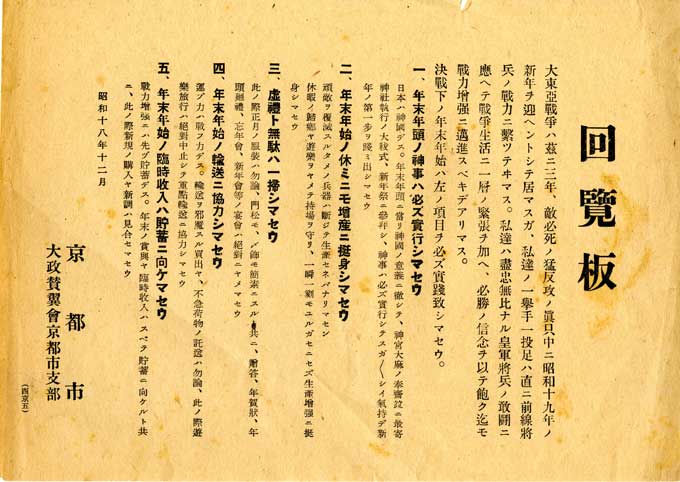 回覽板
大東亞戰爭ハ茲ニ三年、敵必死ノ猛反攻ノ眞只中ニ昭和十九年ノ
新年ヲ迎ヘントシテ居マスガ、私達ノ一擧手一投足ハ直ニ前線將
兵ノ戰力ニ繫ツテヰマス。私達ハ盡忠無比ナル皇軍將兵ノ敢鬪ニ
應ヘテ戰爭生活ニ一層ノ緊張ヲ加ヘ、必勝ノ信念ヲ以テ飽ク迄モ
戰力增强ニ邁進スベキデアリマス。
決戰下ノ年末年始ハ左ノ項目ヲ必ズ實踐致シマセウ。
一、年末年頭ノ神事ハ必ズ實行シマセウ
日本ハ神國デス。年末年頭ニ當リ神國ノ意義ニ徹シテ、神宮大麻ノ奉齋竝ニ最寄
神社執行ノ大祓式、新年祭ニ參拜シ、神事ハ必ズ實行シテスガ〱シイ氣持デ新
年ノ第一步ヲ踐ミ出シマセウ
二、年末年始ノ休ミニモ增産ニ挺身シマセウ
頑敵ヲ覆滅スルタメノ兵器ハ斷ジテ生産セネバナリマセン
休暇ノ歸鄕ヤ遊樂ヲヤメテ持場ヲ守リ、一瞬一刻モユルガセニセズ生産增强ニ挺
身シマセウ
三、虛禮ト無駄ハ一掃シマセウ
此ノ際正月ノ服裝ハ勿論、門松モ、〆飾モ簡素ニスルト共ニ、贈答、年賀狀、年
頭廻禮、忘年會、新年會等ノ宴會ハ絕對ニヤメマセウ
四、年末年始ノ輸送ニ協力シマセウ
運ブ力ハ戰フ力デス。輸送ヲ邪魔スル買出ヤ、不急荷物ノ託送ハ勿論、此ノ際遊
樂旅行ハ絕對中止シテ重點輸送ニ協力シマセウ
五、年末年始ノ臨時收入ハ貯蓄ニ向ケマセウ
戰力增强ニハ先ヅ貯蓄デス。年末ノ賞與ヤ臨時收入ハスベテ貯蓄ニ向ケルト共
ニ、此ノ際新規ノ購入ヤ新調ハ見合セマセウ
昭和十八年十二月
京都市
大政贊翼會京都市支部
(四京五)